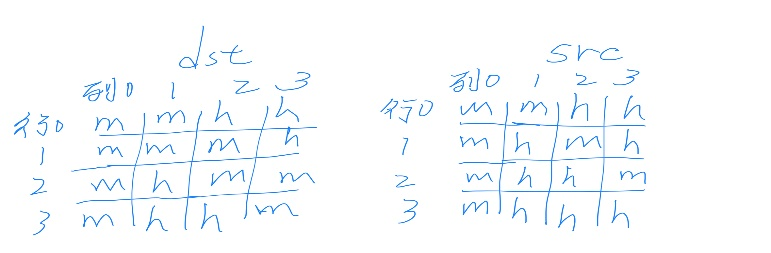 dst
列0 1 2 3
行0 m m h h
1 m m m h
2 m h m m
3 m h h m
src
列0 1 2 3
行0 m m h h
1 m h m h
2 m h h m
3 m h h h